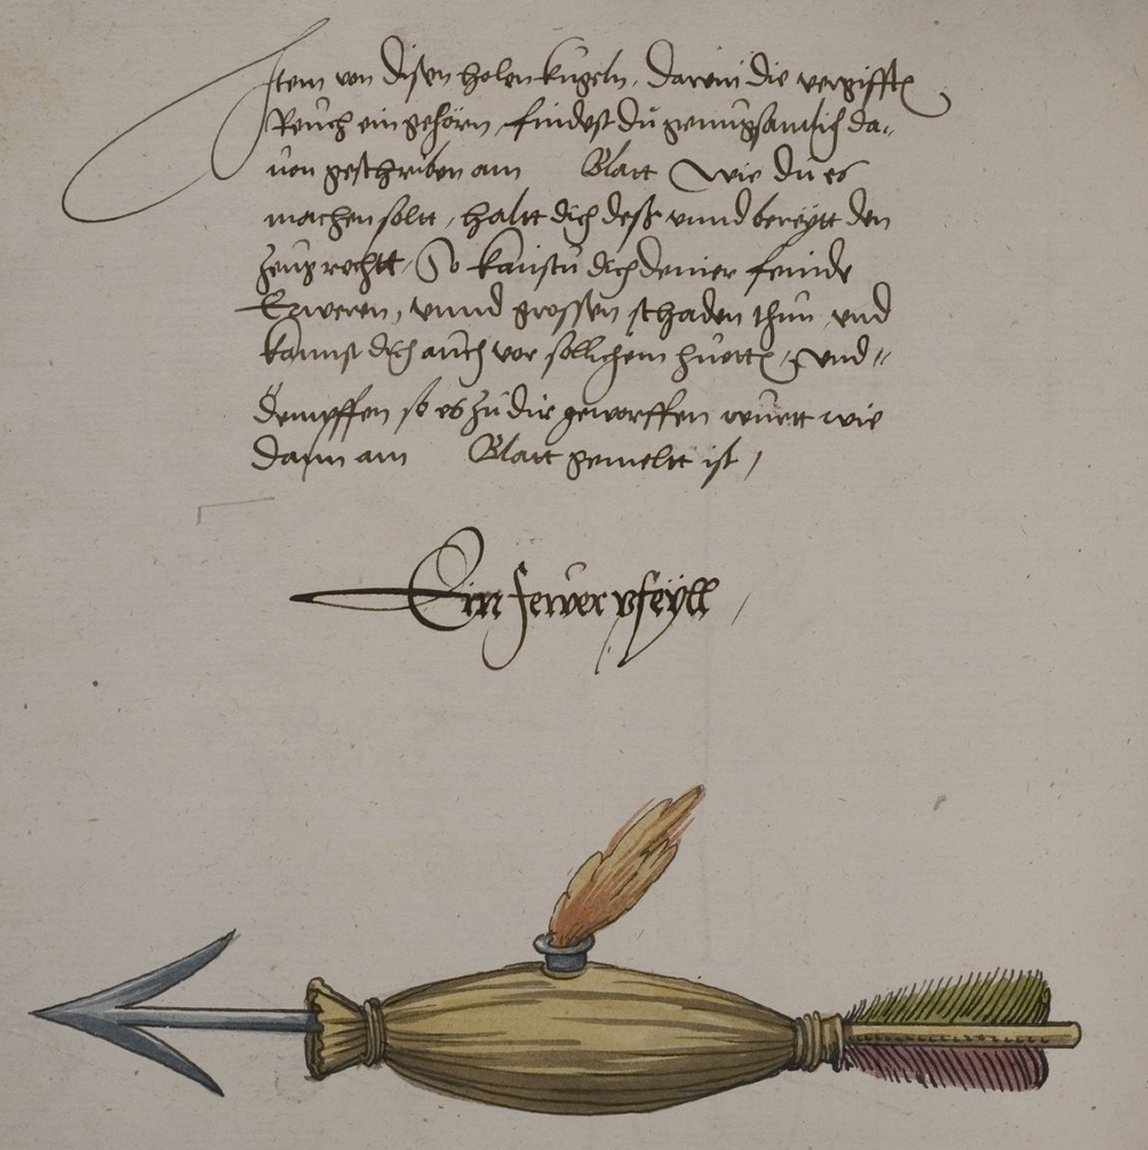 Item von disen holen kugeln, darein die vergifften
Reüch ein gehörn, findest du genugsamlich da„
uon geschriben am Blatt Wie du es
machen soltt, haltt dich deß vnnd bereÿtt den
zeug rechtt, So kanstu dich deiner feinde
Erweren, vnnd grossen schaden thun vnd
kannst dich auch vor sollichem huetten, vnd„
dempffen so es zu dir geworffen wurtt wie
dann am Blatt gemeltt ist,
Ein fewer pfeÿll,